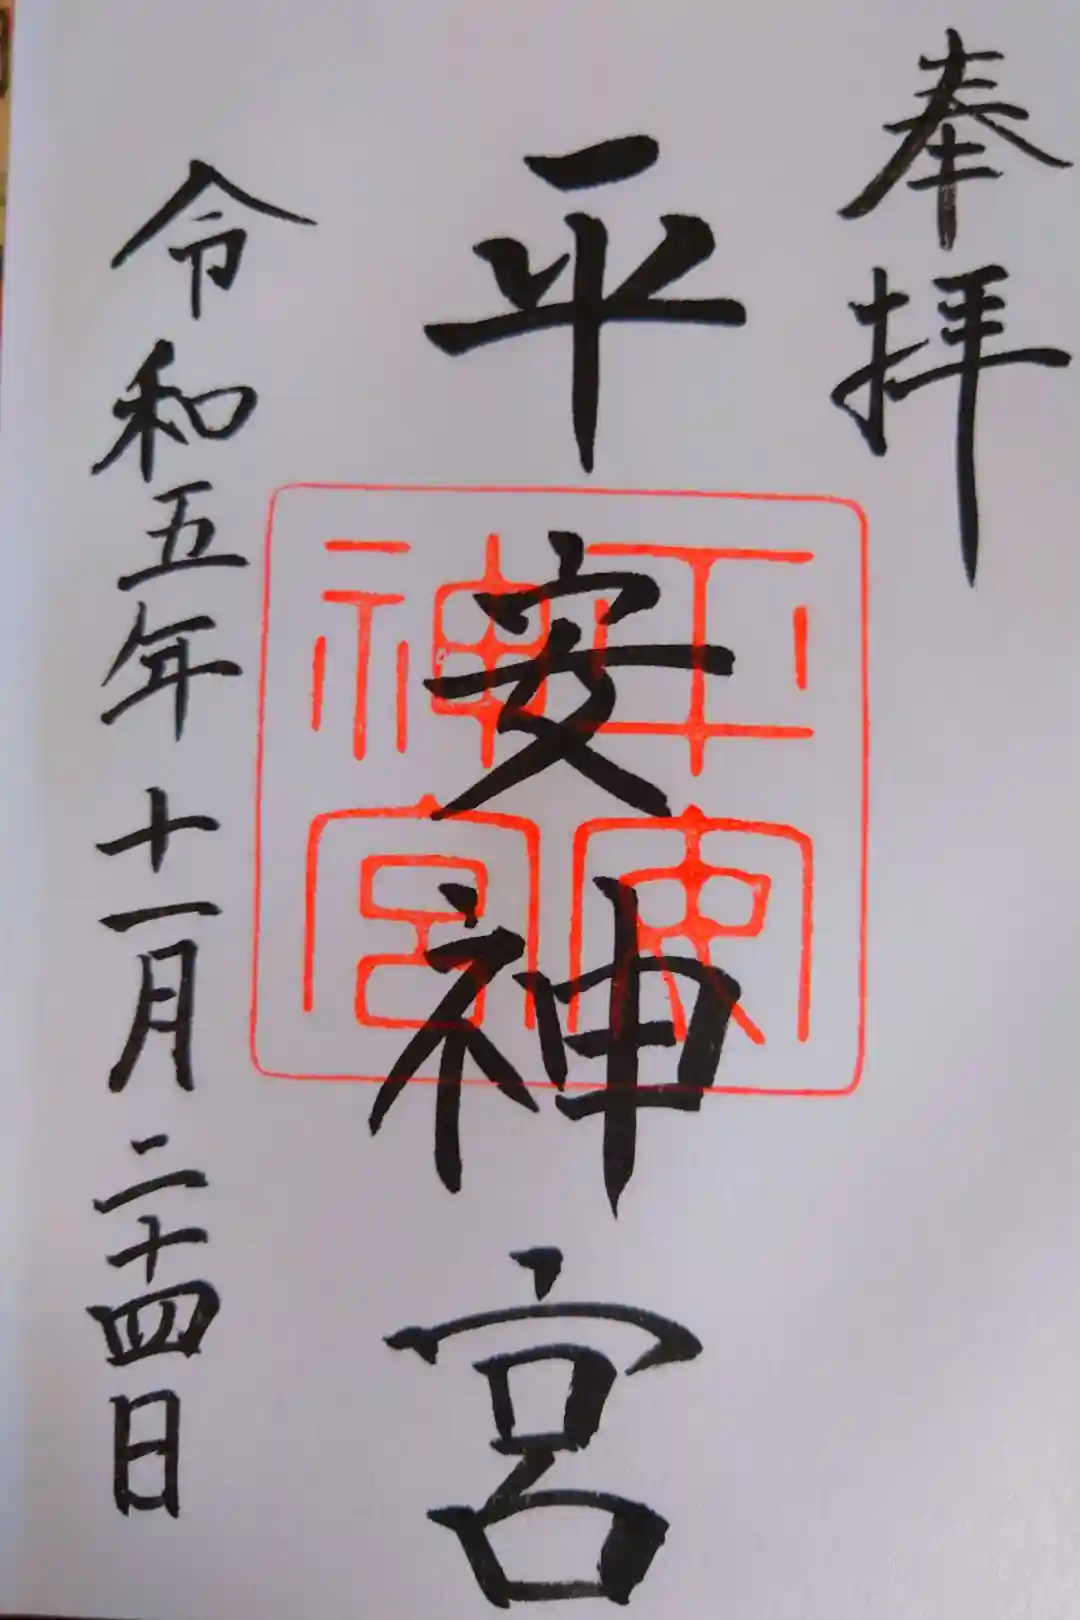 奉拝
平安神宮
平安神宮
令和五年十一月二十四日